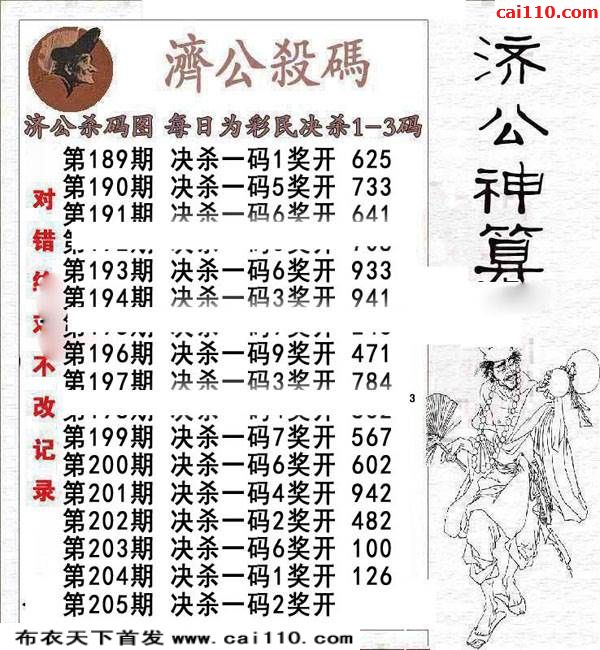 cai110.com
濟公殺碼
济公杀码图 每日为彩民决杀1-3码
第189期 决杀一码1奖开 625
第190期 决杀一码5奖开 733
第191期 决杀一码6奖开 641
第193期 决杀一码6奖开 933
第194期 决杀一码3奖开 941
第196期 决杀一码9奖开 471
第197期 决杀一码3奖开 784
3
第199期 决杀一码7奖开 567
第200期 决杀一码6奖开 602
第201期 决杀一码4奖开 942
第202期 决杀一码2奖开 482
第203期 决杀一码6奖开 100
第204期 决杀一码1奖开 126
第205期 决杀一码2奖开
对错
不改记录
济公神算
布衣天下首发 www.cai110.com